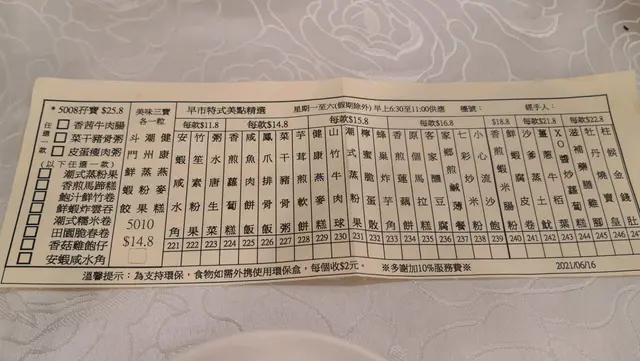 *5008孖寶 $25.8
任選一款
香茜牛肉腸
菜干豬骨粥
皮蛋瘦肉粥
(以下任選一款)
潮式蒸粉果
香煎馬蹄糕
鮑汁鮮竹卷
鮮蝦炸雲吞
潮式糯米卷
田園脆春卷
香菇雞飽仔
安蝦咸水角
美味三寶
各一粒
斗門蝦餃
潮州粉果
健康燕麥糕
5010
$14.8
早市特式美點精選
星期一至六(假期除外)早上6:30至11:00供應
檯號:
經手人:
每款$11.8
每款$14.8
每款$16.8
$18.8
每款$21.8
每款$22.8
安蝦咸水角 221
竹笙素粉果 222
粥水唐生菜 223
香煎蘿蔔糕 224
咸魚肉飯 225
鳳爪排骨飯 226
菜干豬骨粥 227
芋茸煎軟餅 228
健康燕麥糕 229
山竹牛肉球 230
潮式蒸粉果 231
檸蜜脆蛋散 232
蜂巢炸芋角 233
香煎蓮藕餅 234
原個馬拉糕 235
客家釀豆腐 236
家鄉煎薄 237
七彩炒米粉 238
小心流沙 239
240
鮮蝦腸 241
沙爹牛 242
薑蔥 243
XO醬炒蘿蔔糕 244
滋補藥膳雞腳 245
牡丹燒賣 246
柱侯金錢肚 247
溫馨提示:為支持環保,食物如需外携使用環保盒,每個收$2元。
※多謝加10%服務費※
2021/06/16